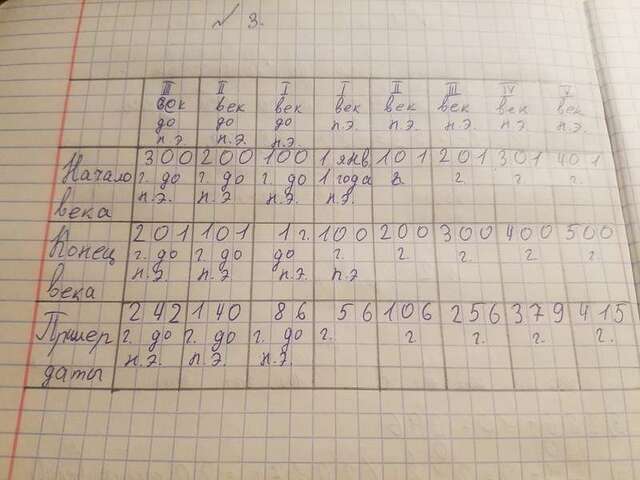 № 3.
III II I I II III IV V
век век век век век век век век
до до до н.э. н.э. н.э. н.э. н.э.
н.э. н.э. н.э.
Начало 300 200 100 1 янв 101 201 301 401
г. до г. до г. до 1 года г. г. г. г.
века н.э. н.э. н.э. н.э.
Конец 201 101 1 г. 100 200 300 400 500
г. до г. до до г. г. г. г. г.
века н.э. н.э. н.э. н.э
Пример 242 140 86 56 106 256 379 415
г. до г. до г. до г. г. г. г. г.
даты н.э. н.э. н.э.